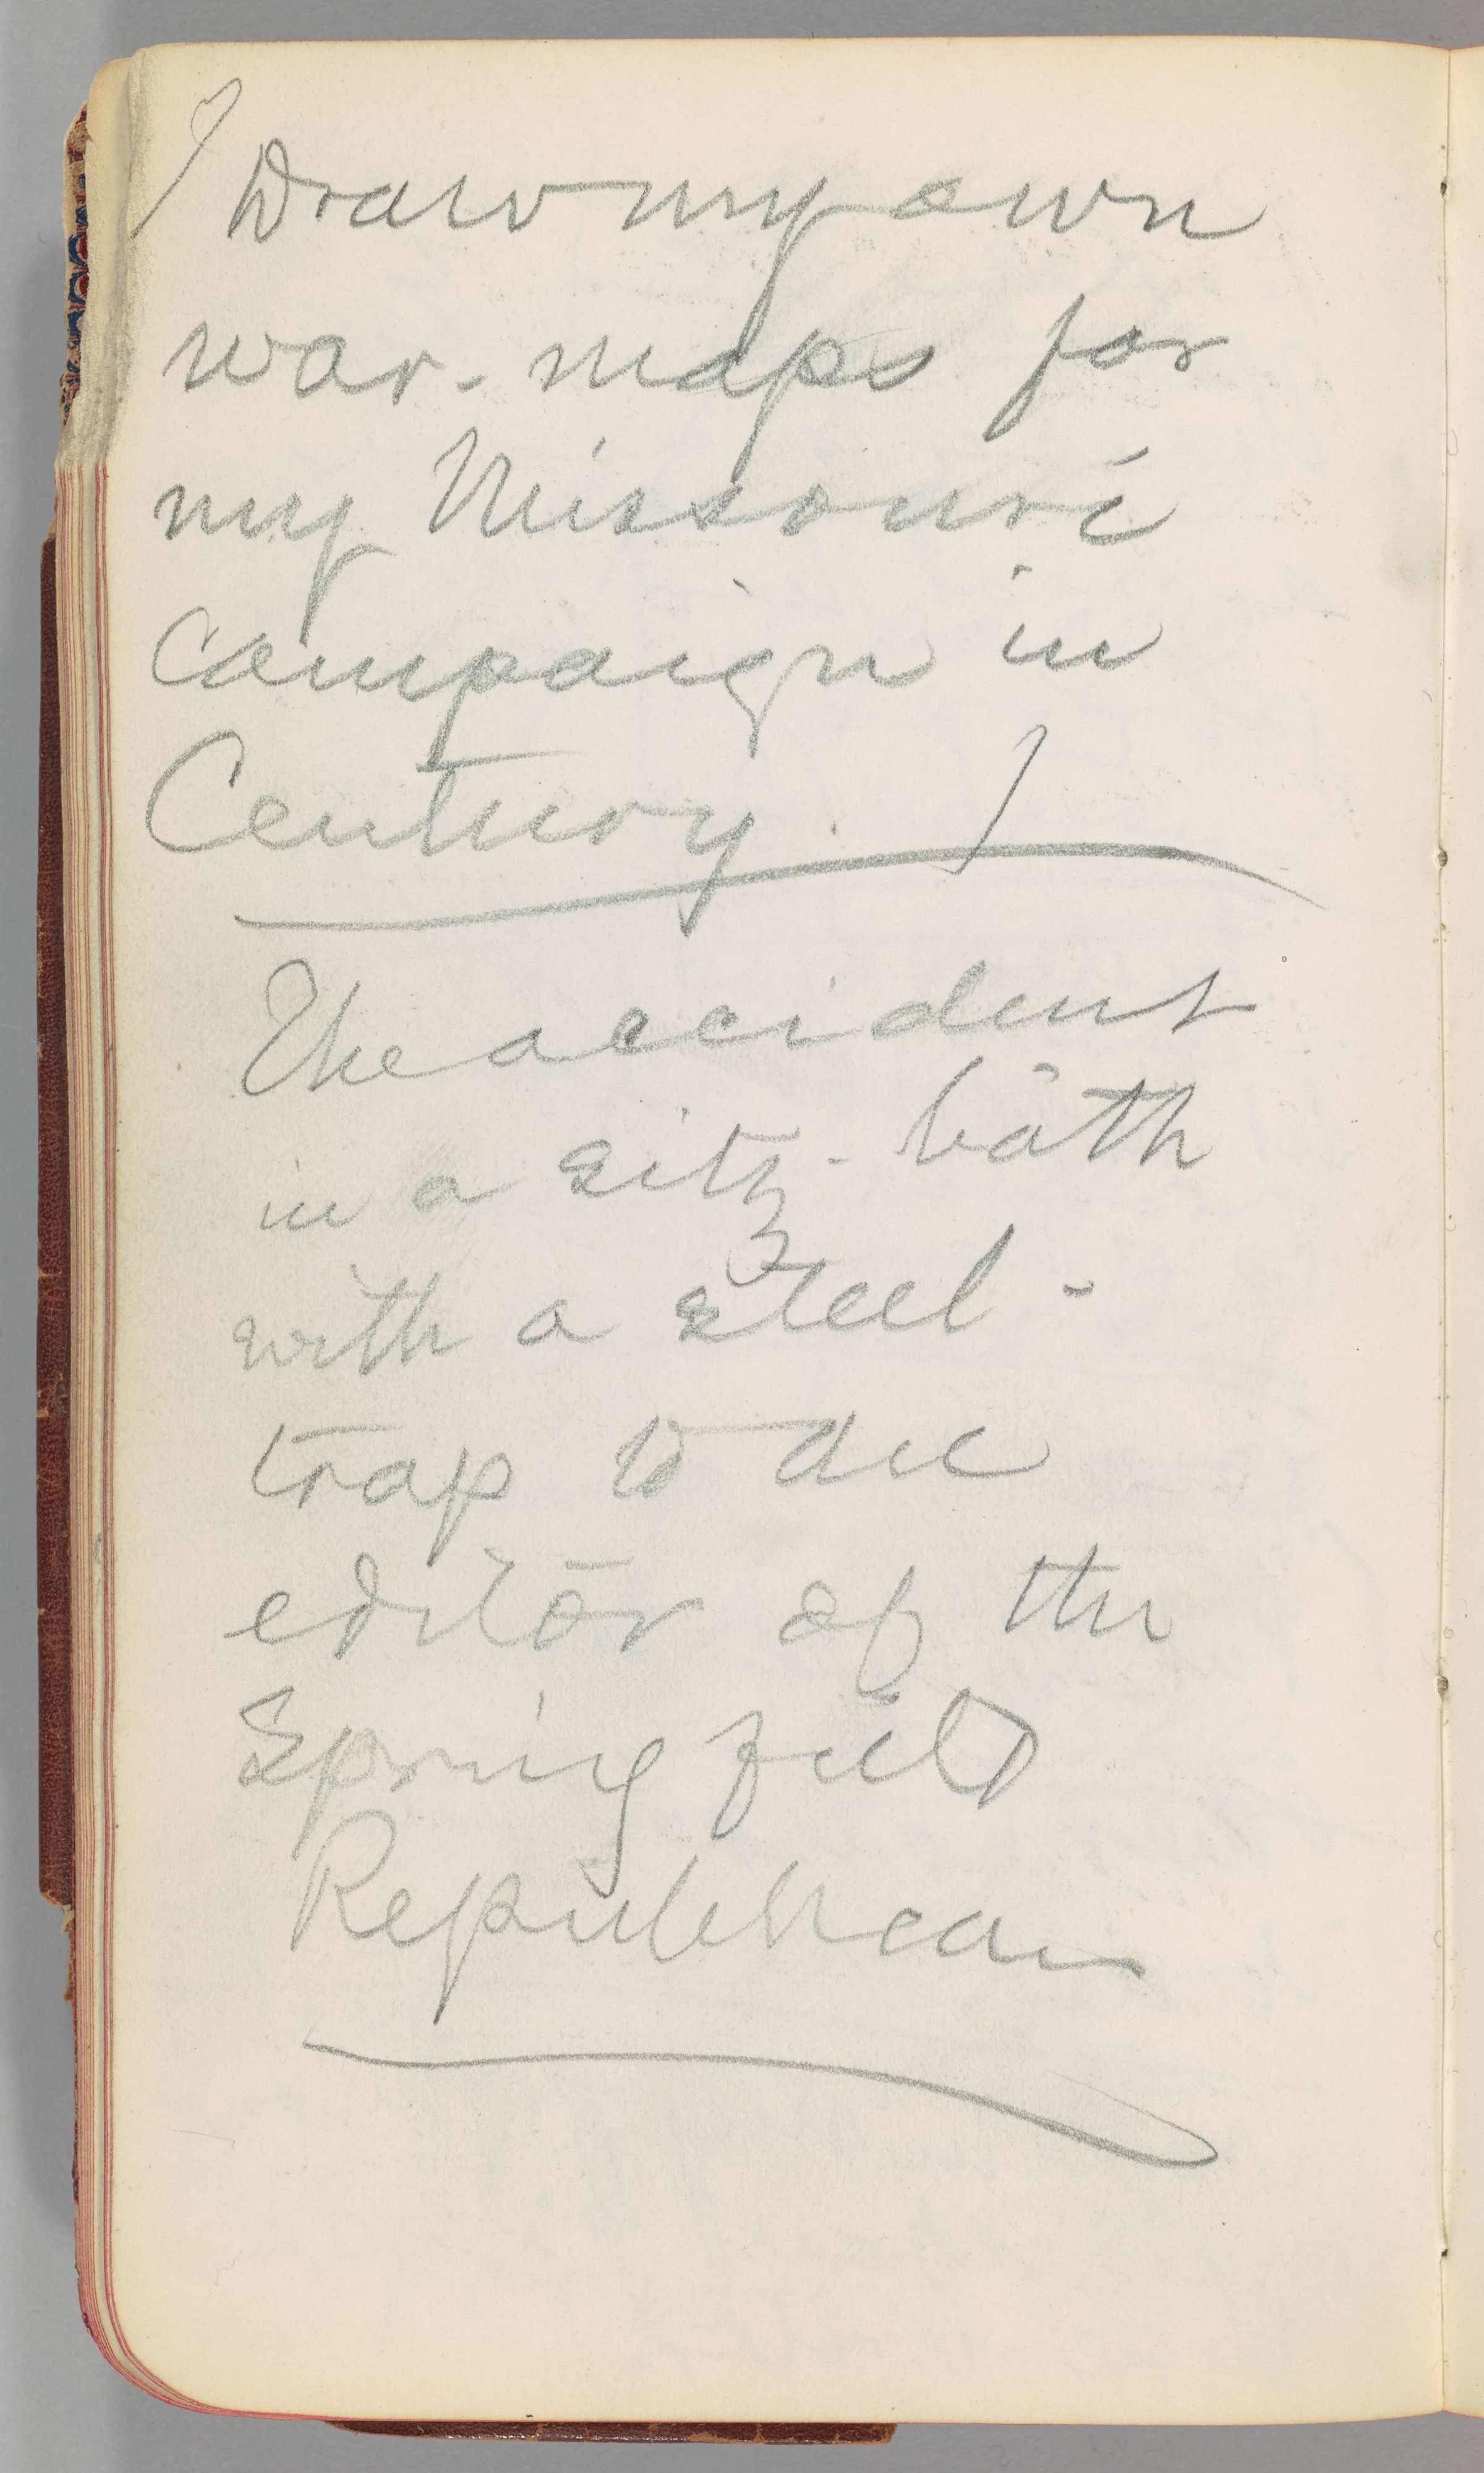 / Draw my own
war-maps for
my Missouri
Campaign in
Century. /
The accident
in a sitz-bath
with a steel-
trap to the
editor of the
Springfield
Republican